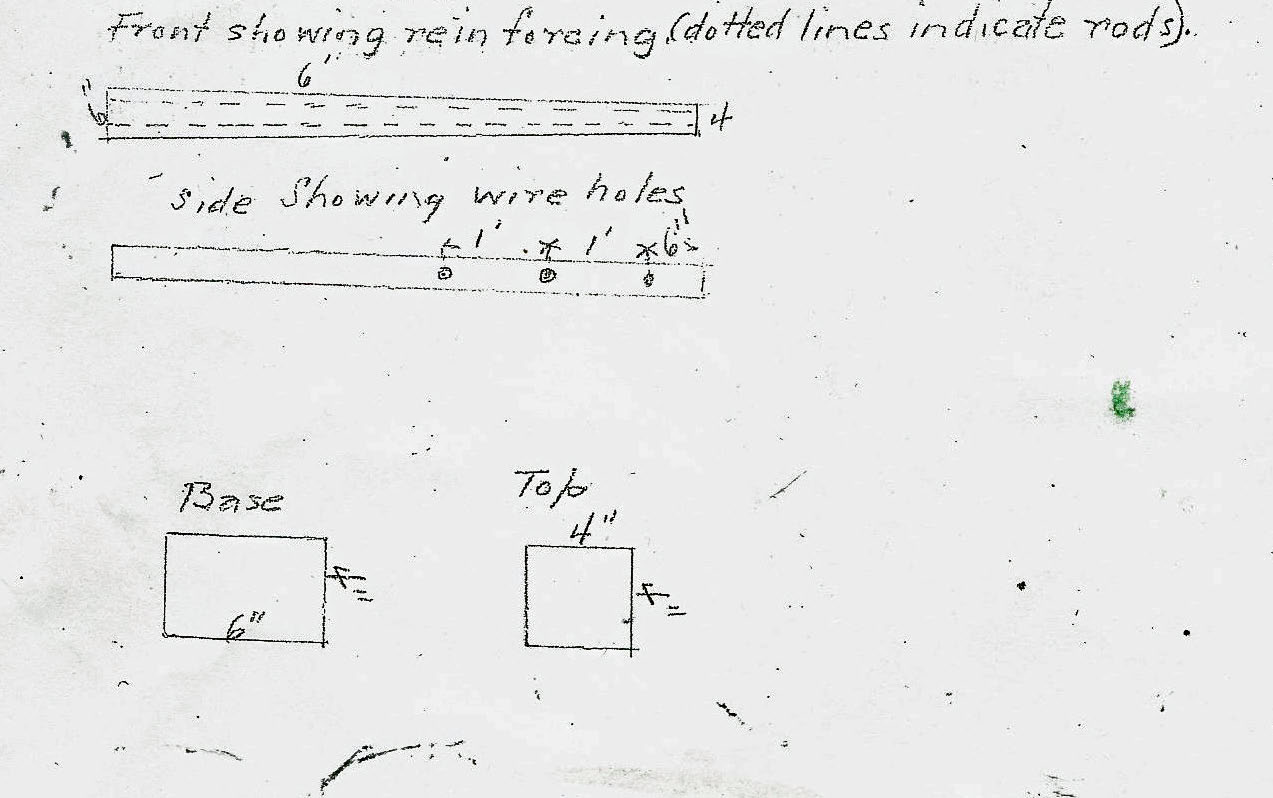 Front showing reinforcing (dotted lines indicate rods).
6'
6" 4
side Showing wire holes
1' 1' 6"
Base Top
4"
6"